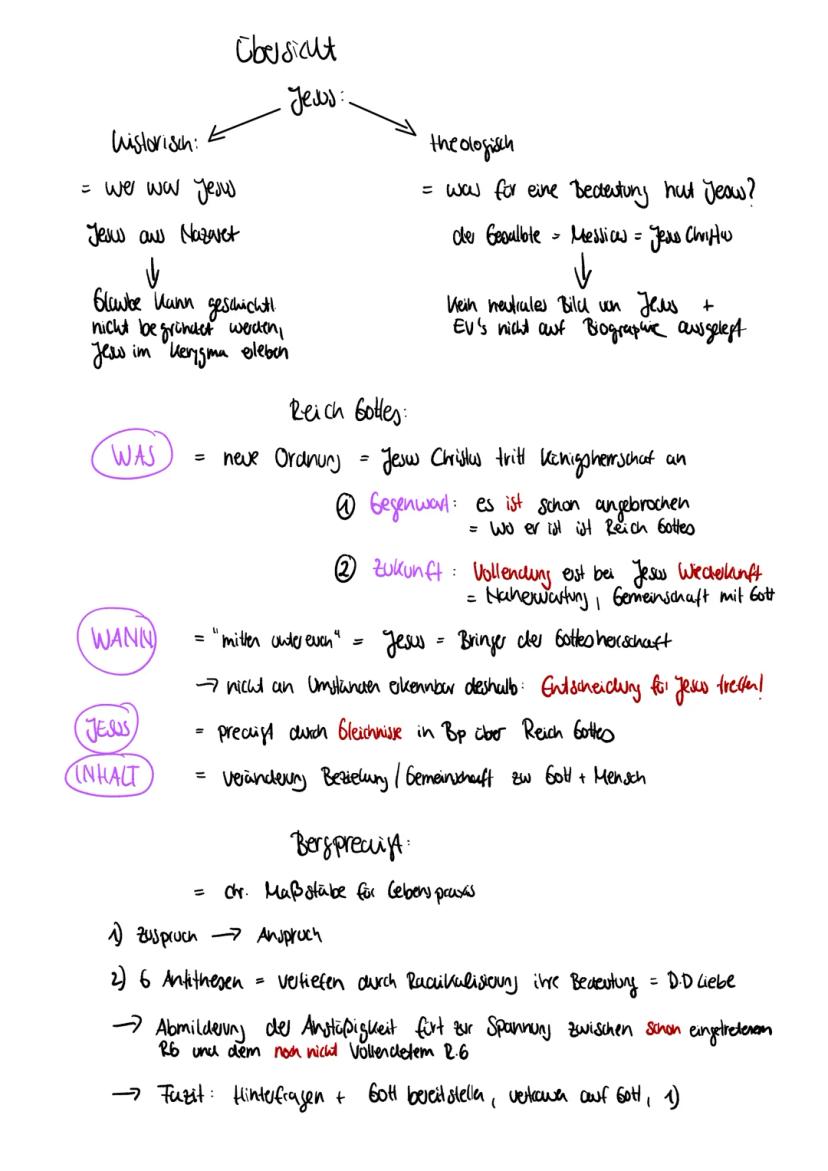 Übersicht
Jesus:
historisch:
theologisch
= wer war Jesus
= was für eine Bedeutung hat Jesus?
Jesus aus Nazaret
der Gesalbte = Messias = Jesus Christus
Glaube kann geschichtl
nicht begründet werden,
Jesus im Kerygma erleben
Kein neutrales Bild von Jesus +
EV's nicht auf Biographie ausgelegt
Reich Gottes:
WAS = neue Ordnung = Jesus Christus tritt Königsherrschaf an
① Gegenwart: es ist schon angebrochen
= Wo er ist ist Reich Gottes
② Zukunft: Vollendung erst bei Jesus Wiederkunft
= Naherwartung, Gemeinschaft mit Gott
WANN = "mitten unter euch" = Jesus = Bringer der Gottesherrschaft
→ nicht an Umständen erkennbar deshalb: Entscheidung für Jesus treffen!
JESUS = predigt durch Gleichnisse in Bp über Reich Gottes
INHALT = veränderung Beziehung / Gemeinschaft zu Gott + Mensch
Bergpredigt:
= chr. Maßstäbe für Lebenspraxis
1) Zuspruch → Anspruch
2) 6 Antithesen = vertiefen durch Radikalisierung ihre Bedeutung = D.D Liebe
→ Abmilderung der Anstößigkeit fürt zur Spannung zwischen schon eingetretenem
RG und dem noch nicht Vollendetem R.G
→ Fazit: Hinterfragen + Gott bereitstellen, vertrauen auf Gott, 1)